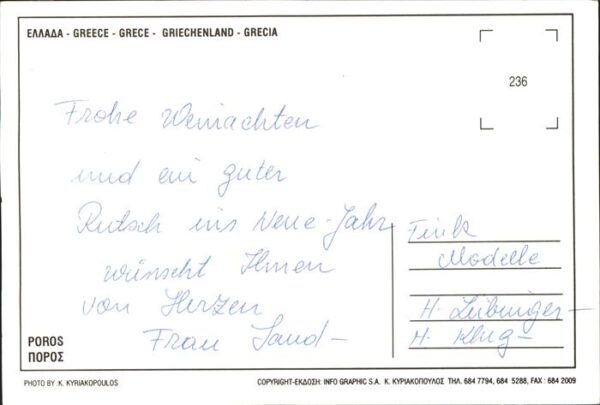 ΕΛΛΑΔΑ - GREECE - GRECE - GRIECHENLAND - GRECIA
236
Frohe Weinachten
und ein guter
Rutsch ins Neue-Jahr
wünscht Ihnen
von Herzen
Frau Sand-
Fink
Modelle
H. Leibinger-
H. Klug-
POROS
ΠΟΡΟΣ
PHOTO BY : K. KYRIAKOPOULOS
COPYRIGHT-ΕΚΔΟΣΗ: INFO GRAPHIC S.A. Κ. ΚΥΡΙΑΚΟΠΟΥΛΟΣ ΤΗΛ. 684 7794, 684 5288, FAX : 684 2009